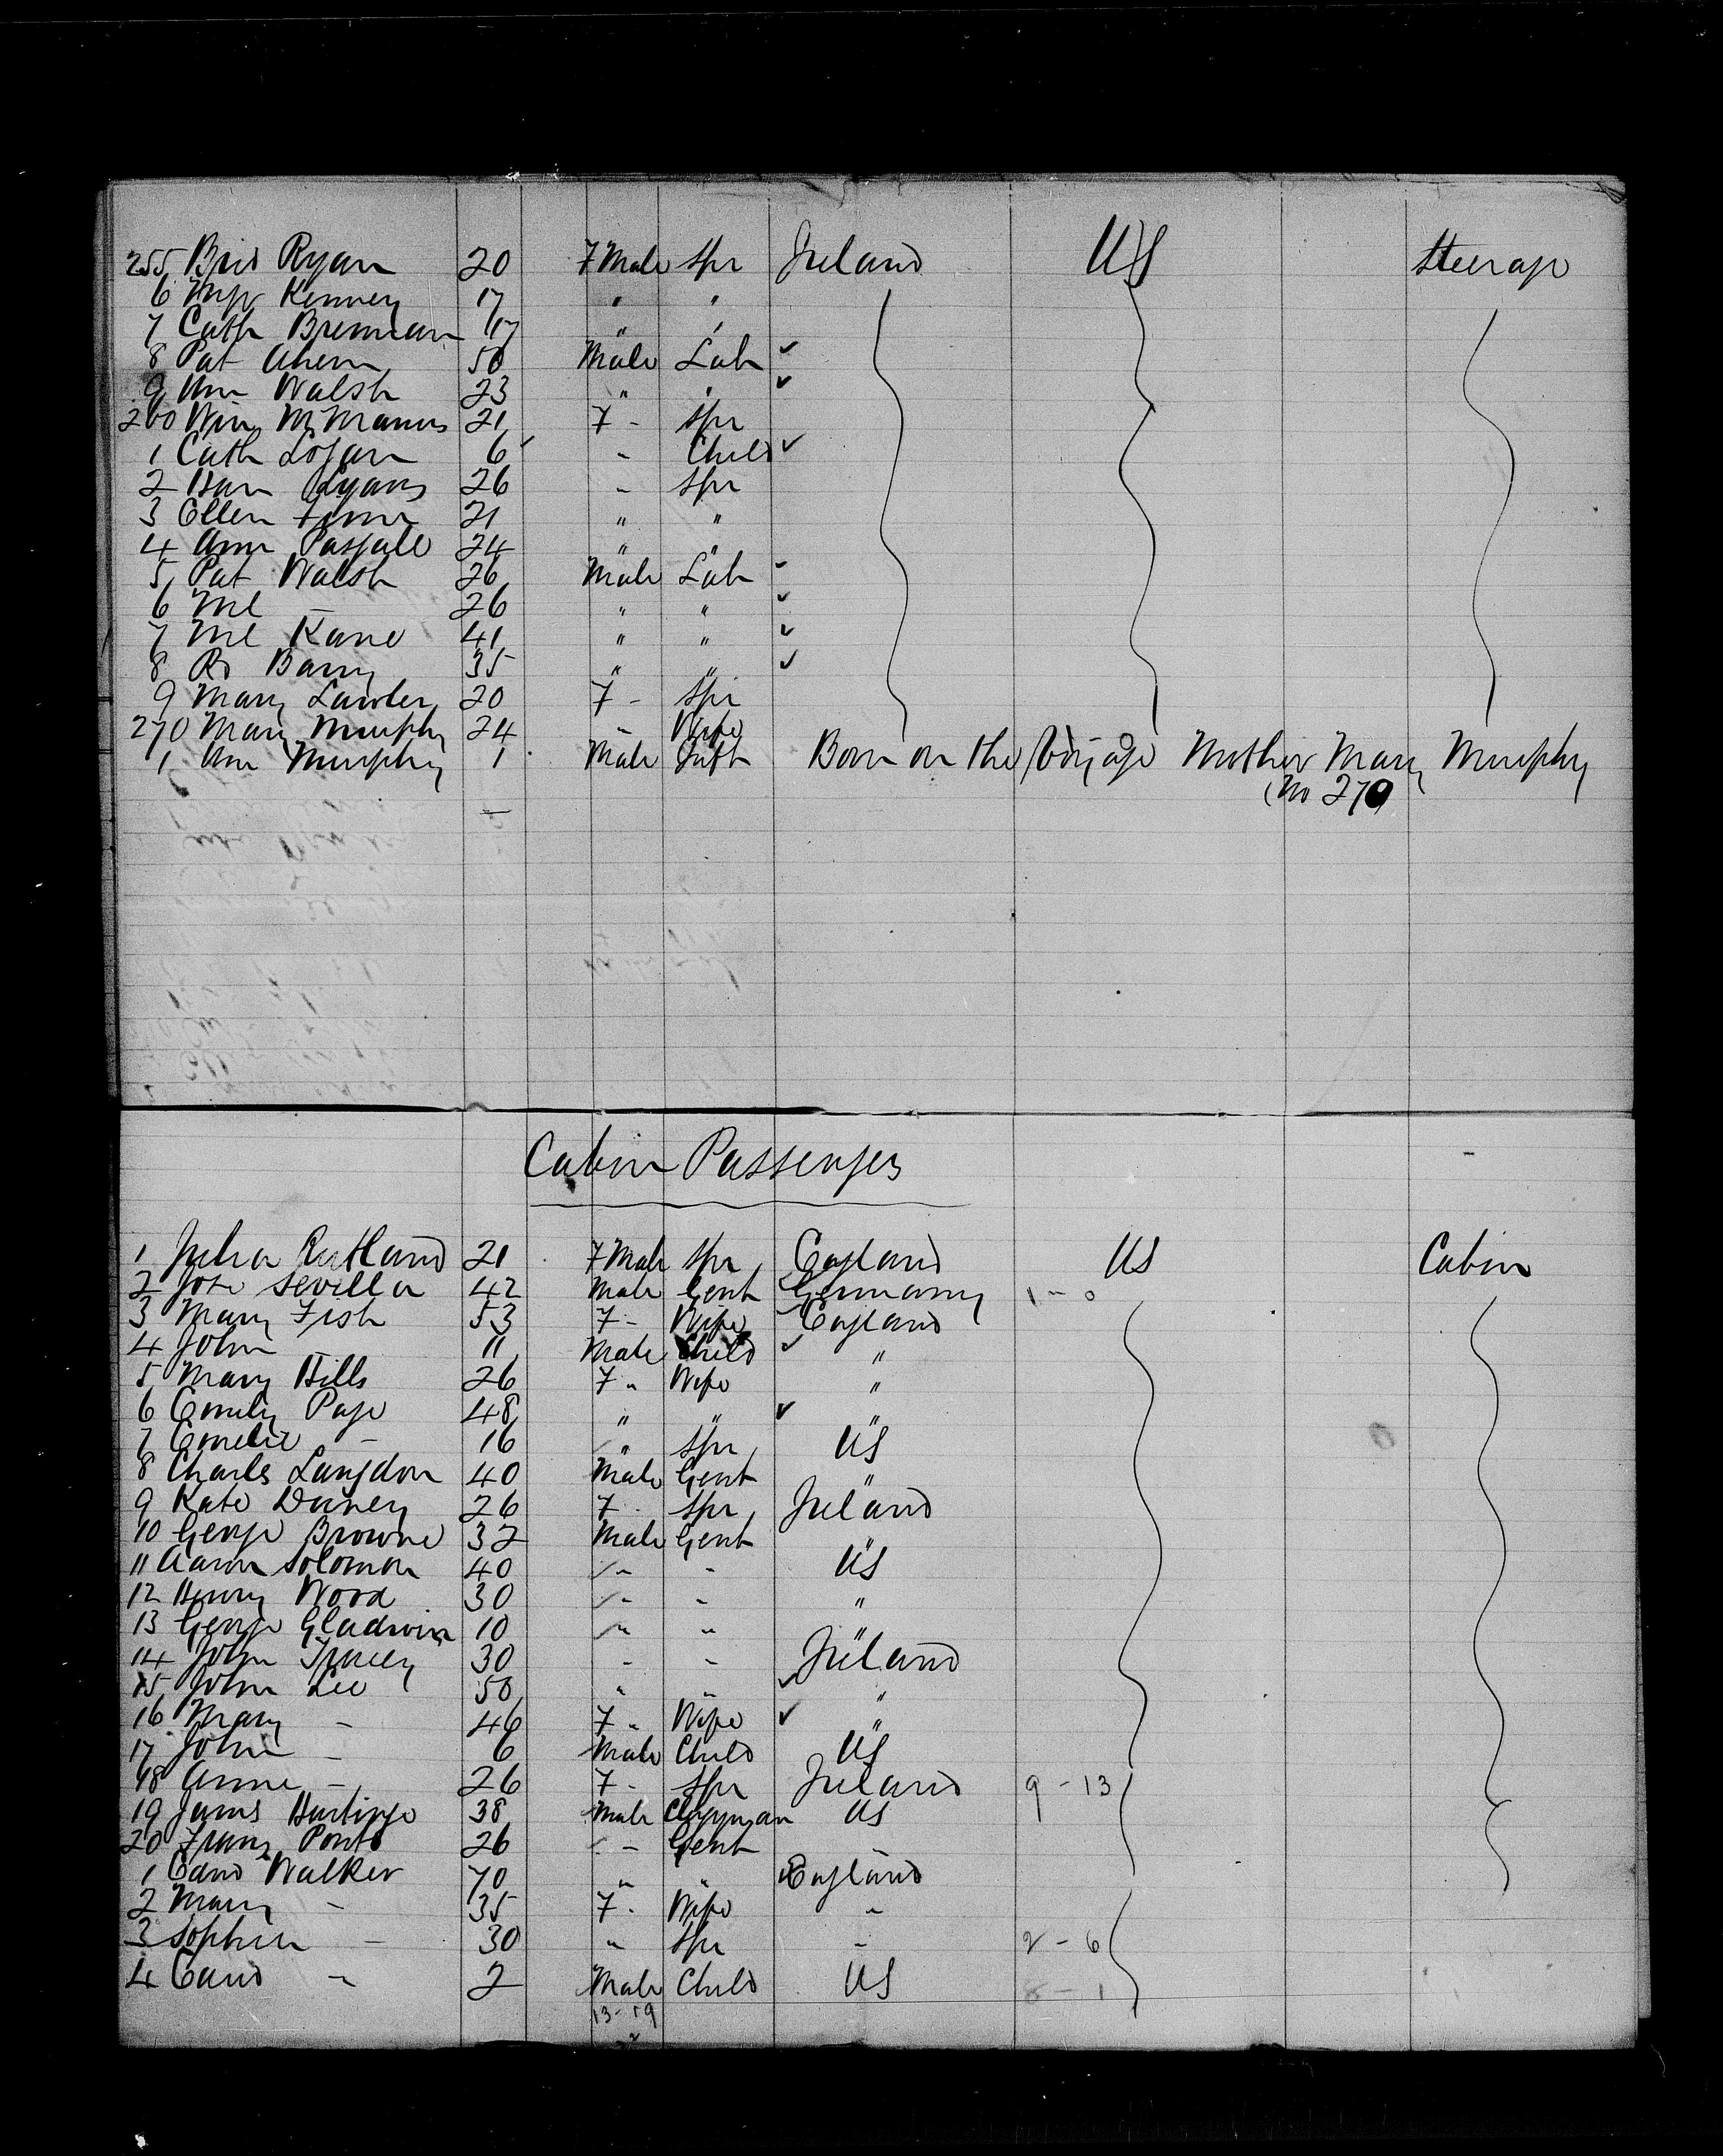 255 Brid Ryan 20 F Male Spr Ireland US Steerage
6 Kenney 17 " "
7 Cath Brennan 17 " "
8 Pat Ahern 50 Male Lab ✓
9 Walsh 23 " " ✓
260 Win McManus 21 F - Spr
1 Cath Logan 6 - Child ✓
2 Lyons 26 - Spr
3 Ellen 21 " "
4 Ann 24 " "
5 Pat Walsh 26 Male Lab
6 Ml - 26 " " ✓
7 Ml Kane 41 " " ✓
8 Rd Barry 35 " " ✓
9 Mary Lawler 20 F - Spr
270 Mary Murphy 24 - Wife
1 Murphy 1 Male Inft Born on the Voyage Mother Mary Murphy
(No 270
Cabin Passengers
1 Julia Rutland 21 F Male Spr England US Cabin
2 Jose Sevilla 42 Male Gent Germany 1 - 0
3 Mary Fish 53 F - Wife England
4 John - 11 Male Child ✓ "
5 Mary Hills 26 F " Wife "
6 Emily Page 48 " " ✓ "
7 Emelie - 16 " Spr US
8 Charles Langdon 40 Male Gent "
9 Kate 26 F - Spr Ireland
10 George Browne 32 Male Gent "
11 Aaron Solomon 40 " - US
12 Henry Wood 30 " - "
13 George Gladwin 10 " " "
14 John 30 - - Ireland
15 John Lee 50 " " ✓ "
16 Mary - 46 F " Wife ✓ "
17 John - 6 Male Child US
18 Anne - 26 F - Spr Ireland 9 - 13
19 James 38 Male Clergyman US
20 26 - Gent -
1 Edwd Walker 70 " " England
2 Mary - 35 F - Wife "
3 Sophia - 30 " Spr - 2 - 6
4 - 2 Male Child US
13 - 19